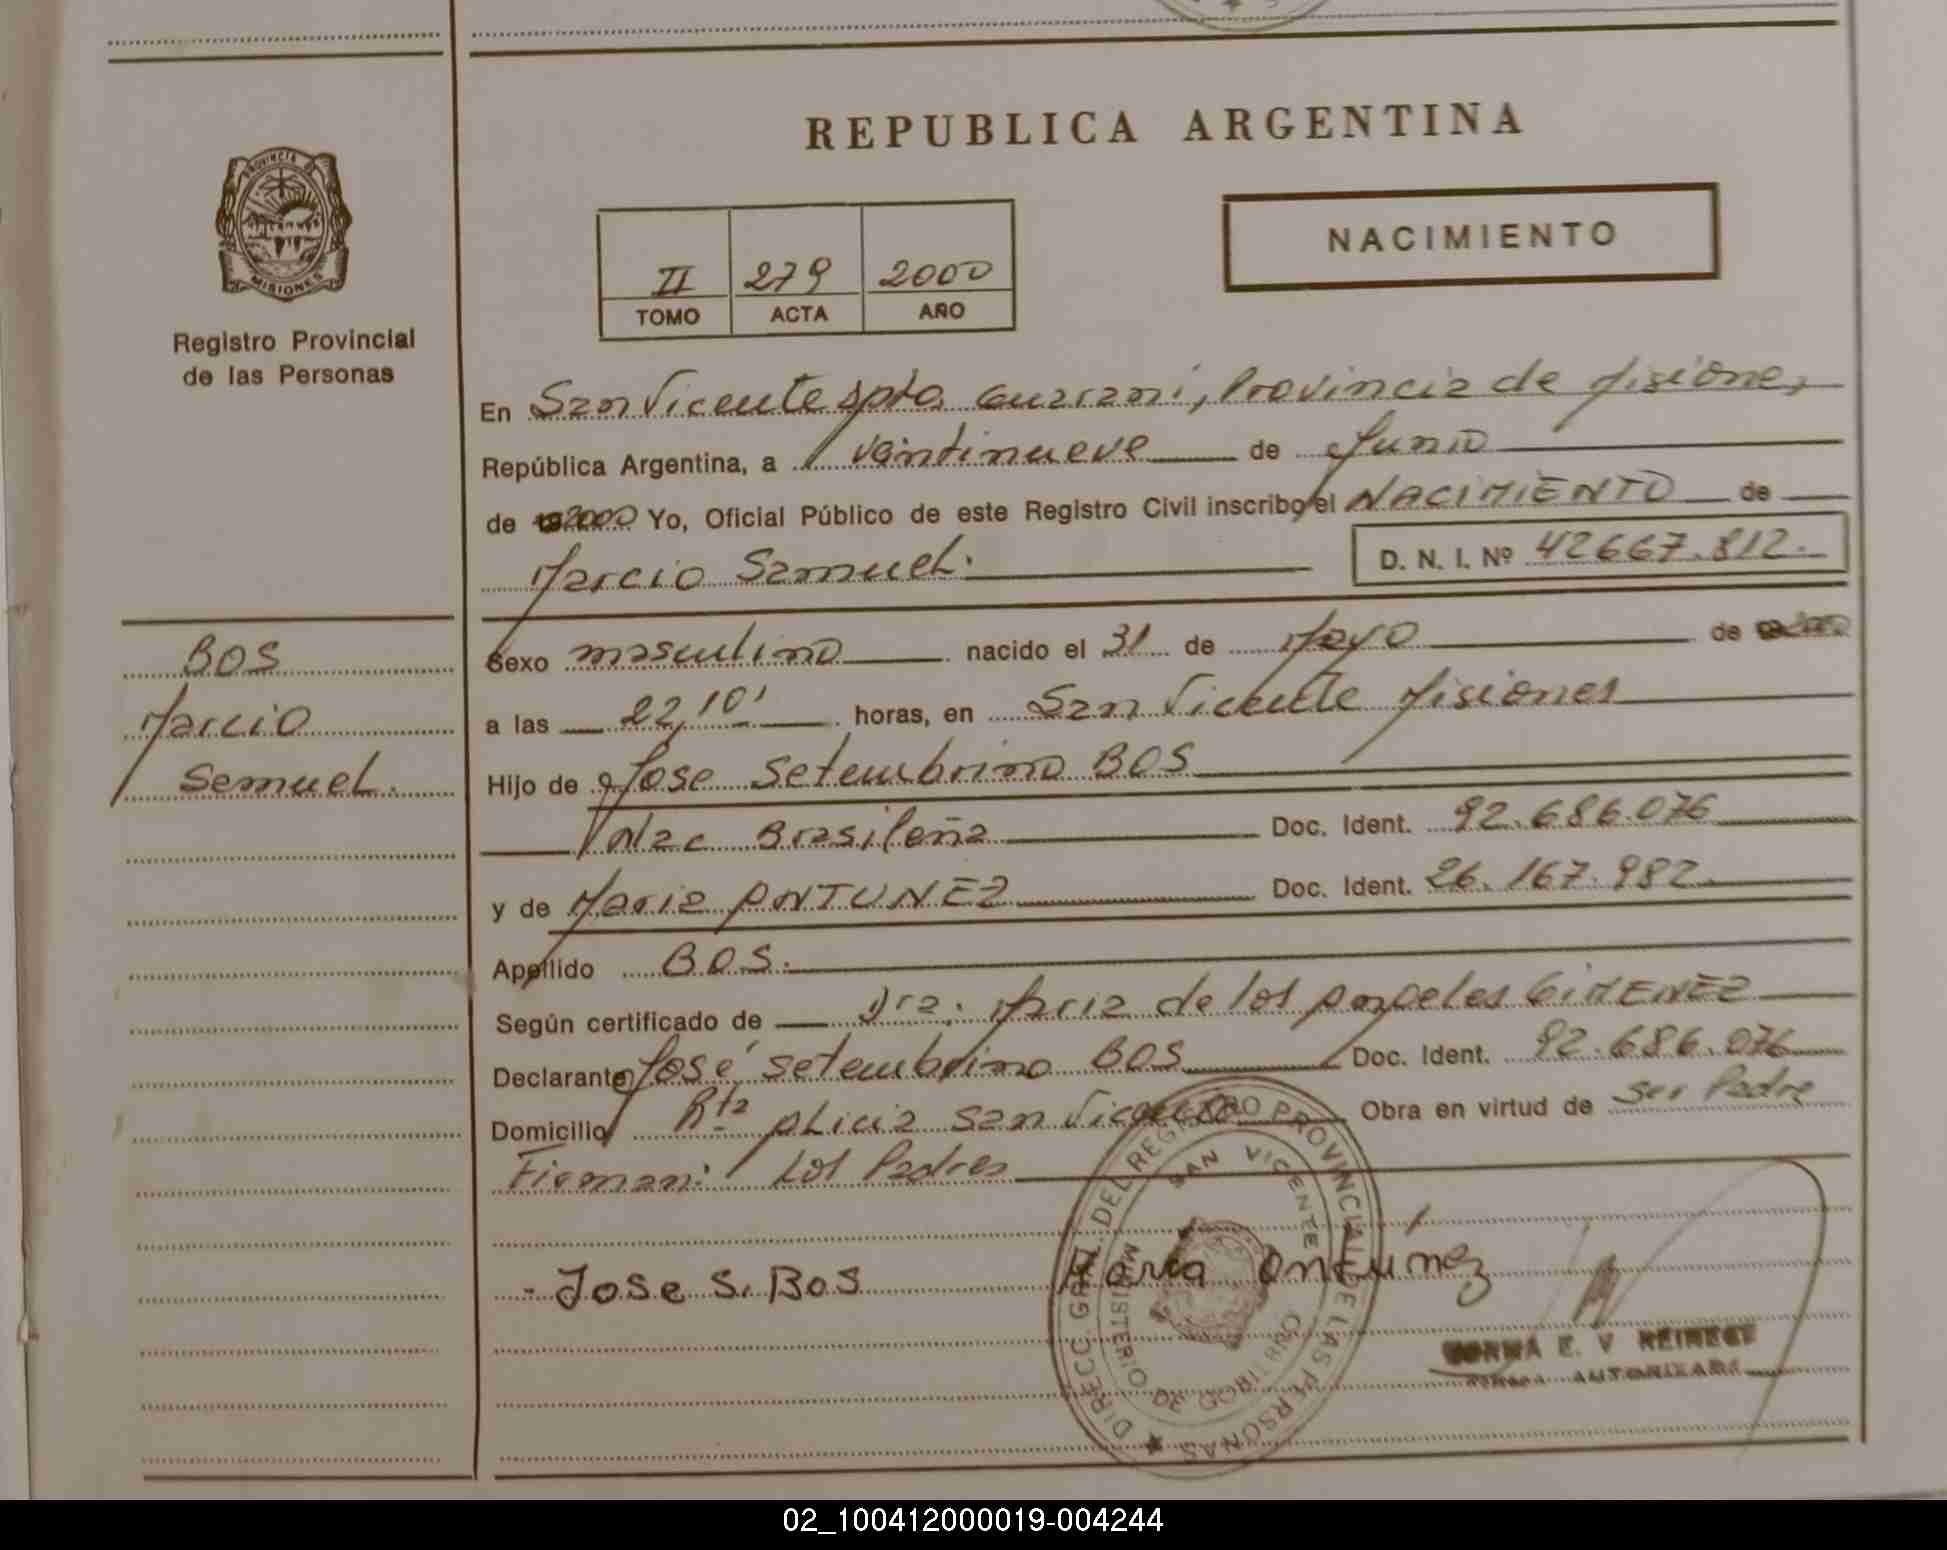 REPUBLICA ARGENTINA
PROVINCIA DE MISIONES
Registro Provincial
de las Personas
II 279 2000
TOMO ACTA AÑO
NACIMIENTO
En San Vicente Dpto. Guarani, Provincia de Misiones,
República Argentina, a veintinueve de Junio
de 2000 Yo, Oficial Público de este Registro Civil inscribo el NACIMIENTO de
Marcio Samuel. D. N. I. Nº 42667.812.
BOS
Marcio
Samuel.
Sexo masculino nacido el 31 de Mayo de 2000
a las 22,10' horas, en San Vicente Misiones
Hijo de Jose Setembrino BOS
Nac Brasileña Doc. Ident. 92.686.076
y de Maria ANTUNEZ Doc. Ident. 26.167.982
Apellido BOS.
Según certificado de Dra. Maria de los Angeles GIMENEZ
Declarante José Setembrino BOS Doc. Ident. 92.686.076
Domicilio Rta Alicia San Vicente Obra en virtud de ser Padre
Firman: Los Padres
- Jose S. Bos María Antúnez
DIRECC. GRAL. DEL REGISTRO PROVINCIAL DE LAS PERSONAS
SAN VICENTE
MINISTERIO DE GOBIERNO
NORMA E. V
02_100412000019-004244